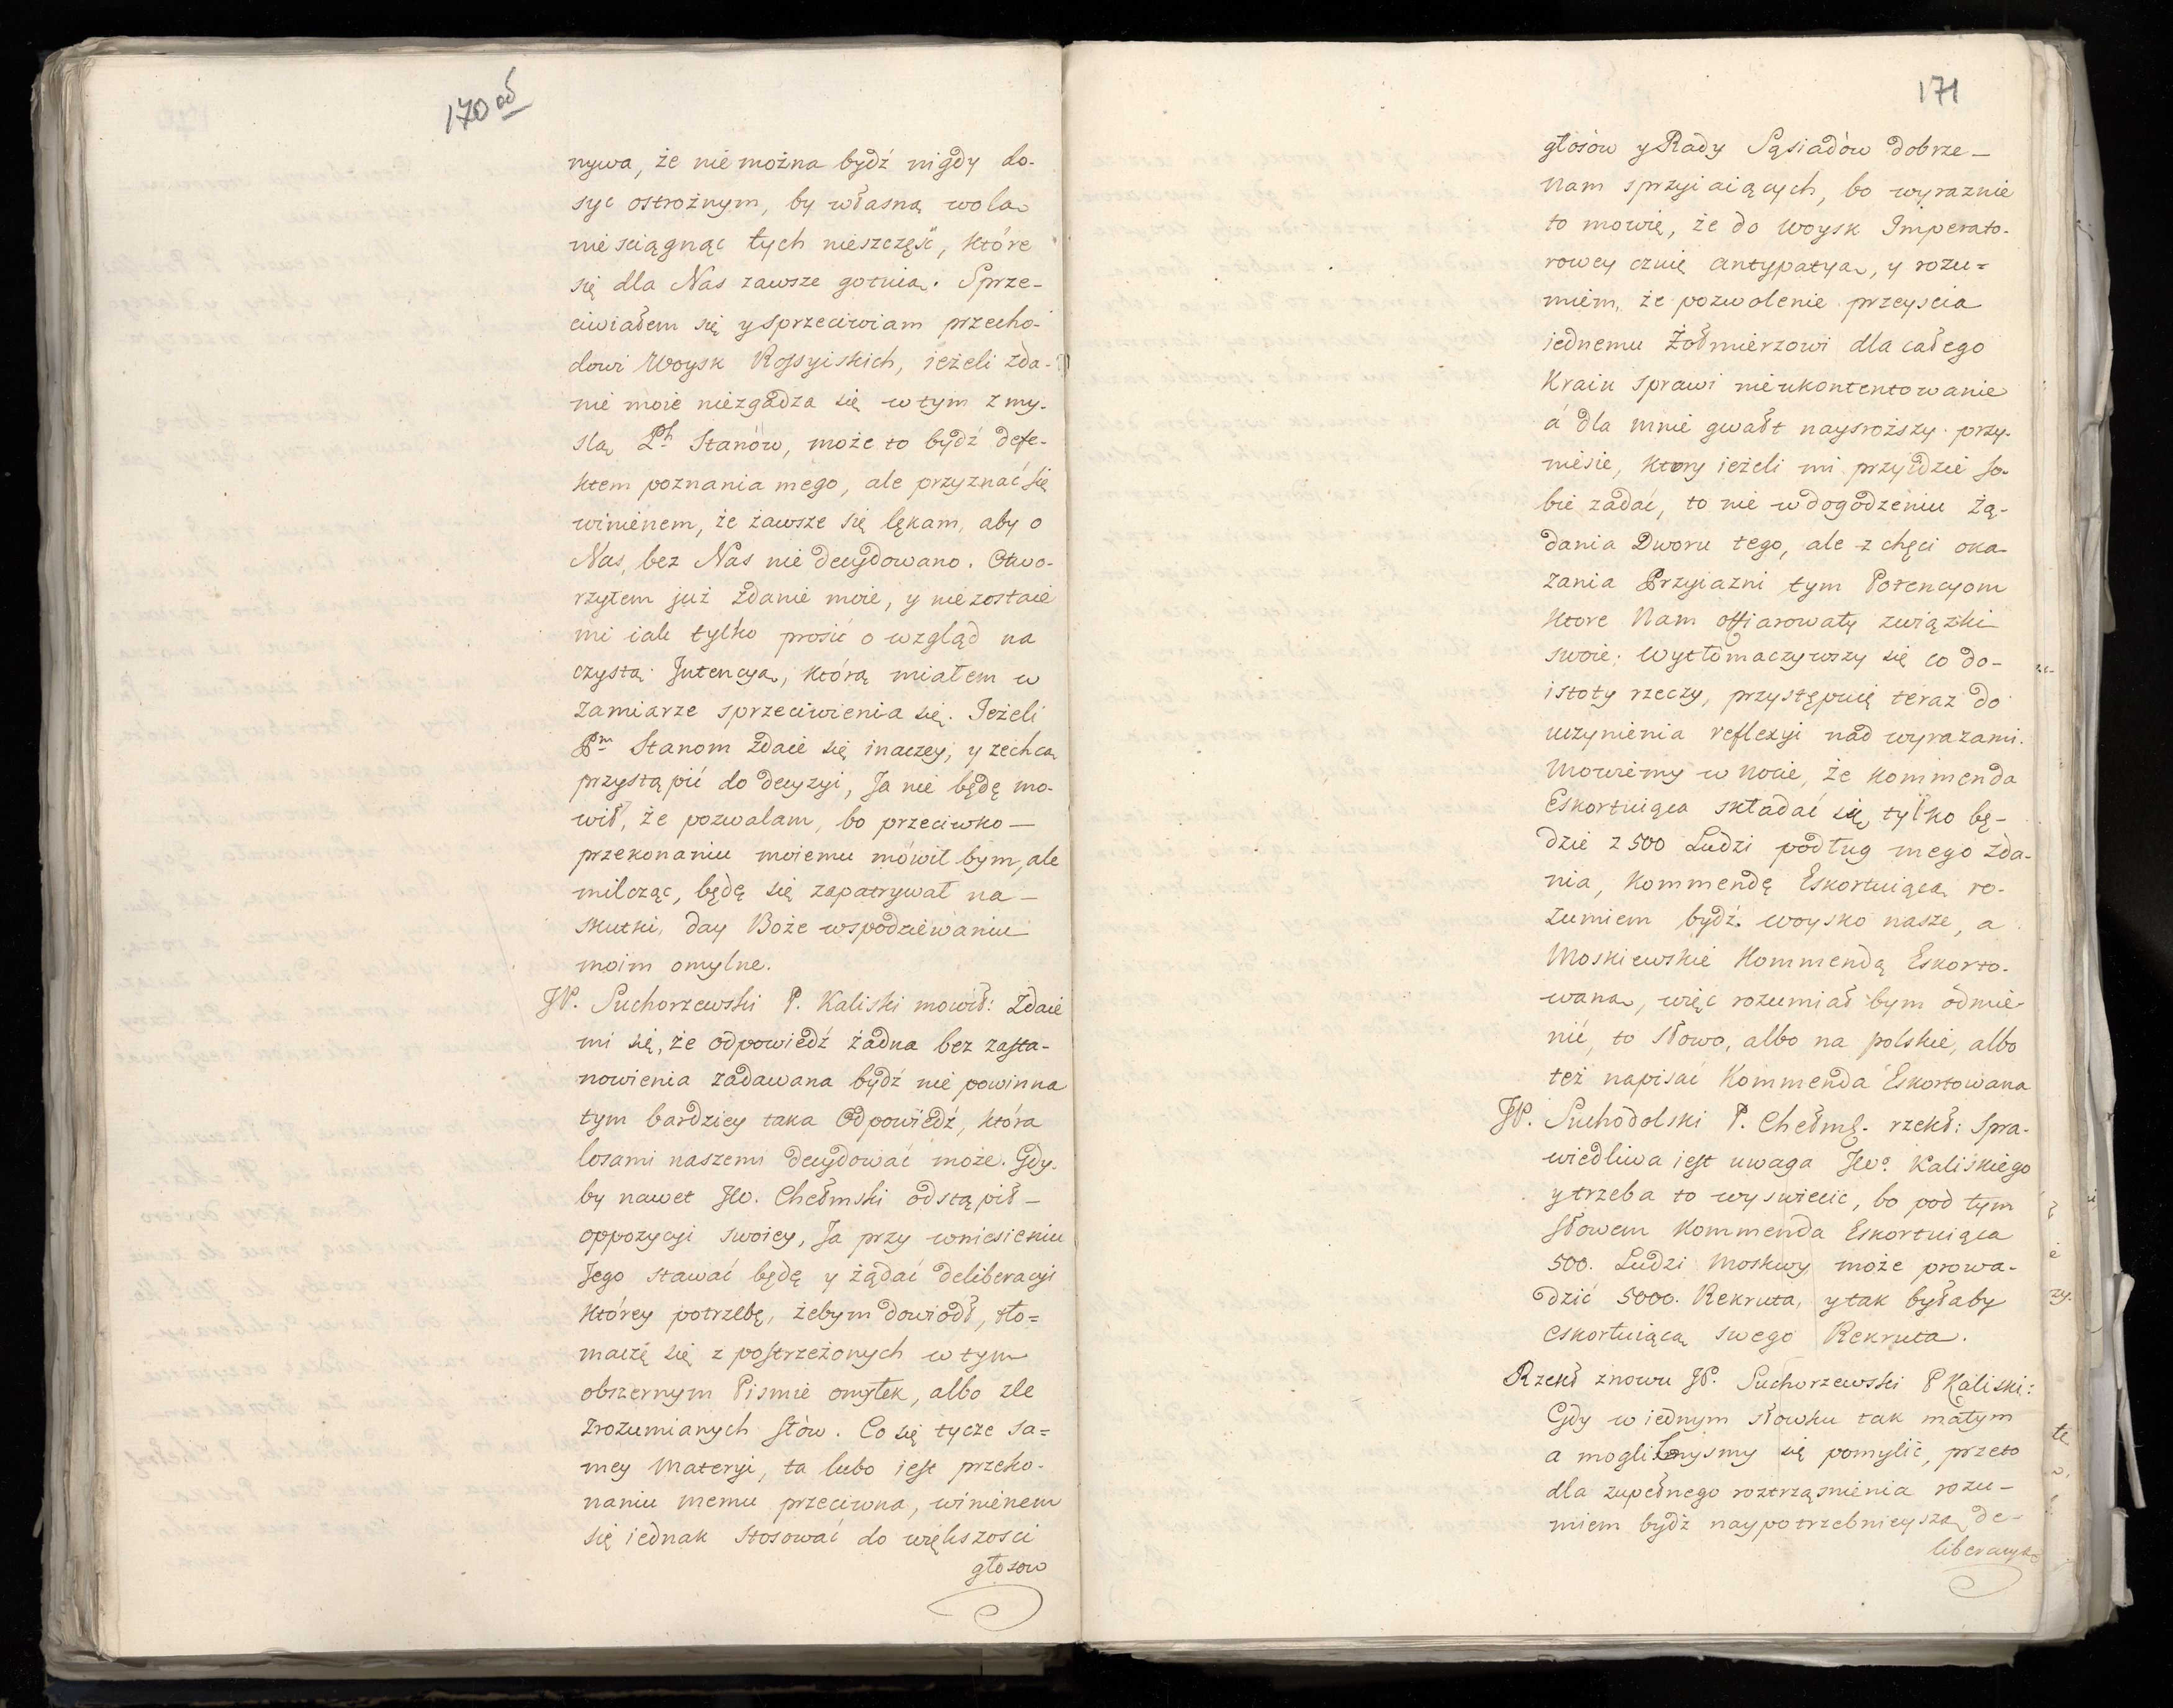 170 об
nywa, że nie można bydź nigdy do-
syc ostrożnym, by własną wolą
nie sciągnąc tych nieszczęść, które
się dla Nas zawsze gotuią. Sprze-
ciwiałem się y sprzeciwiam przecho-
dowi Woysk Rossyiskich, ieżeli zda-
nie moie niezgadza się w tym z my-
slą Pch Stanów, może to bydź defe-
ktem poznania mego, ale przyznać się
winienem, że zawsze się lękam, aby o
Nas, bez Nas nie decydowano. Otwo-
rzyłem już zdanie moie, y nie zostaie
mi iak tylko prosić o wzgląd na
czystą Intencyą, którą miałem w
zamiarze sprzeciwienia się. Jeżeli
Pm Stanom zdaie się inaczey, y zechcą
przystąpić do decyzyi, Ja nie będę mo-
wił, że pozwalam, bo przeciwko —
przekonaniu moiemu mówił bym, ale
milcząc, będę się zapatrywał na —
skutki, day Boże w spodziewaniu
moim omylne.
JP. Suchorzewski P. Kaliski mowił: Zdaie
mi się, że odpowiedź żadna bez zasta-
nowienia zadawana bydź nie powinna
tym bardziey taka Odpowiedź, która
losami naszemi decydować może. Gdy-
by nawet JW. Chełmski odstąpił —
oppozycyi swoiey, Ja przy wniesieniu
Jego stawać będę y żądać deliberacyi
którey potrzebę, żebym dowiodł, tło=
maczę się z postrzeżonych w tym
obszernym Pismie omyłek, albo zle
zrozumianych słów. Co się tycze sa=
mey Materyi, ta lubo iest przeko-
naniu memu przeciwna, winienem
się iednak stosować do większosci
głosow
171
głosów y Rady Sąsiadów dobrze —
Nam sprzyiaiących, bo wyraznie
to mowię, że do Woysk Imperato-
rowey czuię antypatyą, y rozu=
miem, że pozwolenie przeyscia
iednemu Żołnierzowi dla całego
Kraiu sprawi nieukontentowanie
á dla mnie gwałt naysroższy przy-
niesie, ktory ieżeli mi przyidzie so-
bie zadać, to nie w dogodzeniu Żą-
dania Dworu tego, ale z chęci oka-
zania Przyiazni tym Potencyom
które Nam offiarowały związki
swoie; Wytłomaczywszy się co do —
istoty rzeczy, przystępuię teraz do
uczynienia reflexyi nad wyrazami.
Mowiemy w Nocie, że Kommenda
Eskortuiąca składać się tylko bę-
dzie z 500 Ludzi podług mego zda-
nia, Kommendę Eskortuiącą ro-
zumiem bydź woysko nasze, a
Moskiewskie Kommendą Eskorto-
waną, więc rozumiał bym odmie-
nić, to słowo, albo na polskie, albo
też napisać Kommenda Eskortowana
JP. Suchodolski P. Chełmś. rzekł: Spra-
wiedliwa iest uwaga JWo. Kaliskiego
y trzeba to wyswiecić, bo pod tym
słowem Kommenda Eskortuiąca
500. Ludzi Moskwy może prowa-
dzić 5000. Rekruta, y tak byłaby
eskortuiącą swego Rekruta.
Rzekł znowu JP. Suchorzewski P Kaliski:
Gdy w iednym słowku tak małym
a mogli bysmy się pomylić, przeto
dla zupełnego roztrząsnienia rozu —
miem bydź naypotrzebnieyszą de-
liberacyą